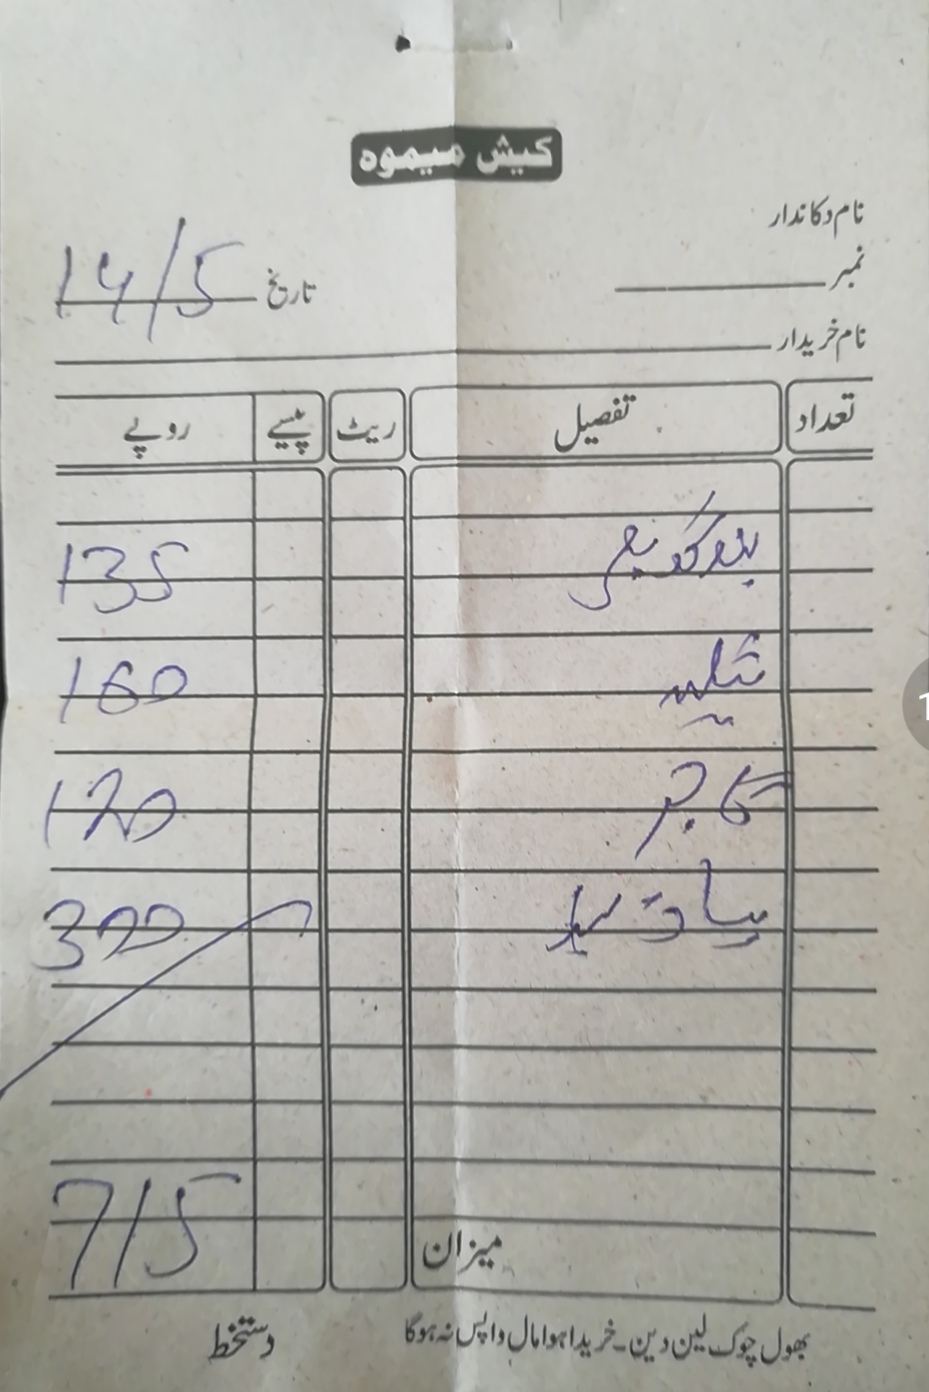 کیش میمو
نام دکاندار
نمبر
تاریخ 14/5
نام خریدار
تعداد تفصیل ریٹ پیسے روپے
بندگوبھی 135
160
گاجر 120
300
میزان 715
بھول چوک لین دین۔خریدا ہوا مال واپس نہ ہوگا
دستخط